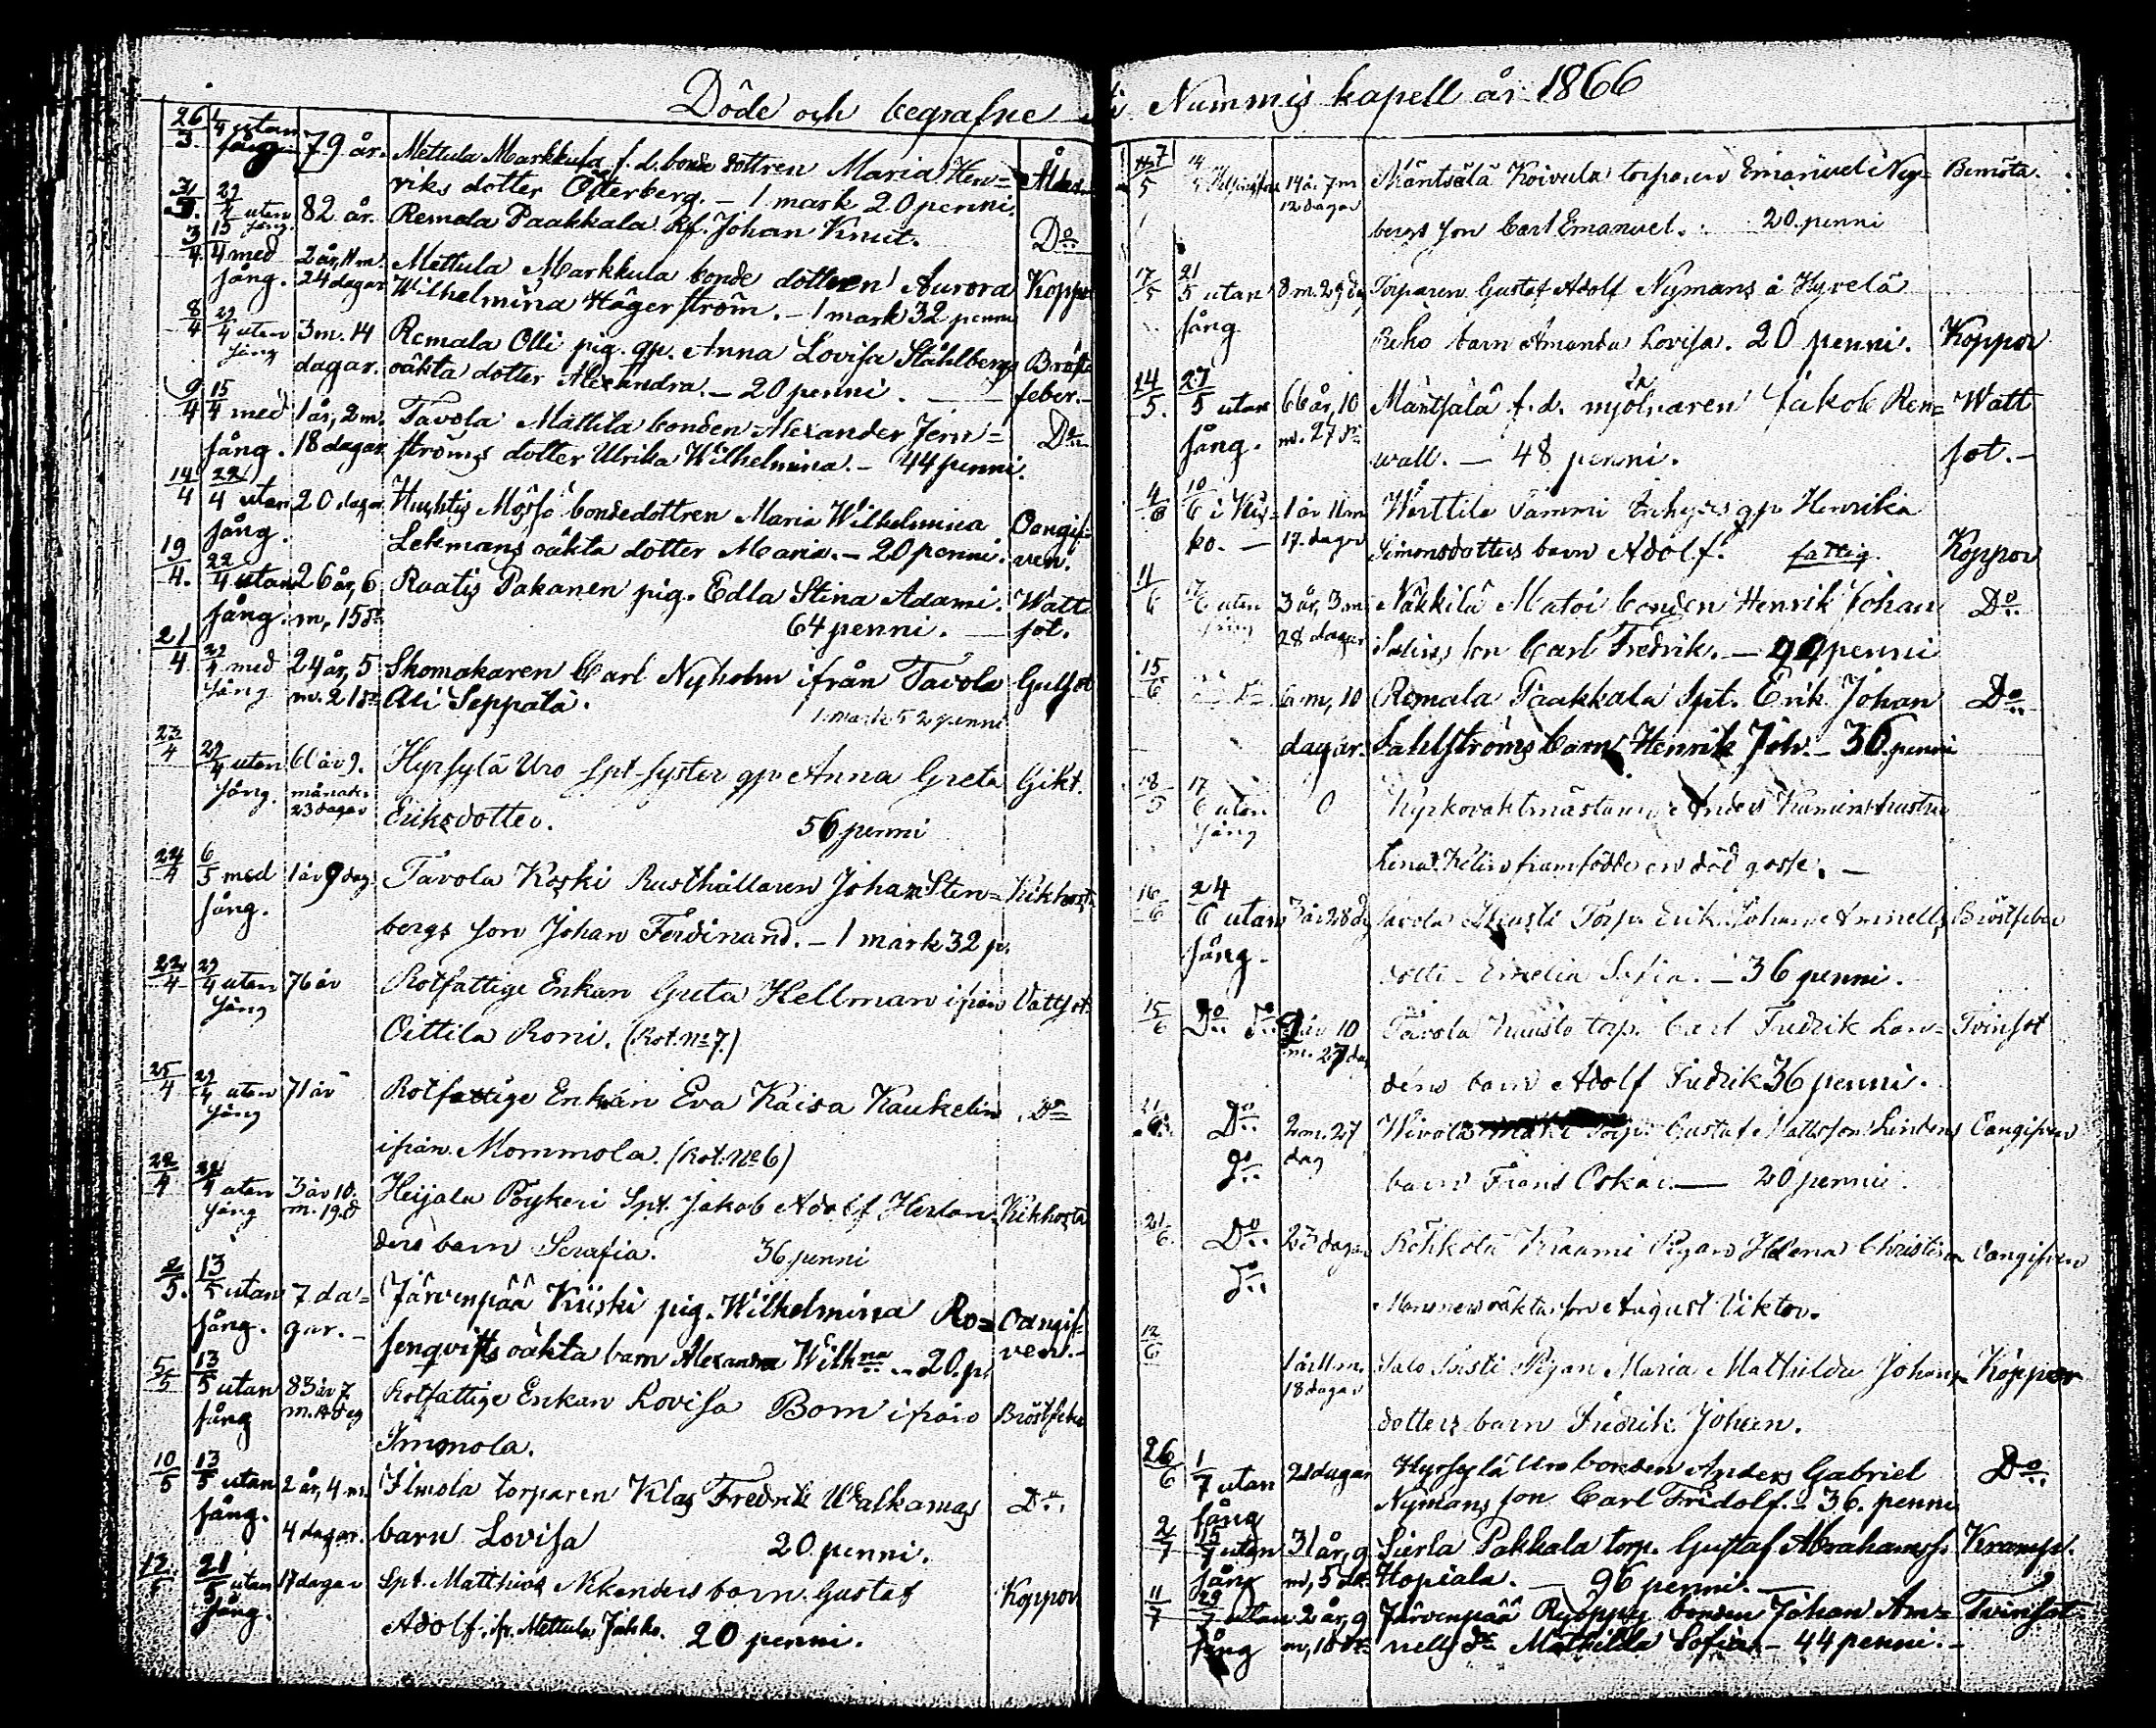 Döde och begrafne i Nummis kapell år 1866
26/3 1/4 utan sång 79 år. Mettula Markkula f. d. bonde dottren Maria Hen= Ålder
riks dotter Österberg. – 1 mark 20 penni.
31/3. 29/4 utan sång. 82 år. Remala Paakkala Rf. Johan Knut. Do
3/4. 15/4 med sång. 2 år, 11 m. 24 dagar Mettula Markkula bonde dottren Aurora Koppor
Wilhelmina Hägerström. – 1 mark 32 penni
8/4 29/4 utan sång 3 m. 14 dagar. Remala Olli pig. qp. Anna Lovisa Ståhlbergs Bröst
oäkta dotter Alexandra. – 20 penni. feber. –
9/4 15/4 med sång. 1 år, 2 m. 18 dagar Tavola Mattila bonden Alexander Jern= Do
ströms dotter Ulrika Wilhelmina. – 44 penni.
14/4 22/4 utan sång. 20 dagar Huhtis bondedottren Maria Wilhelmina Oangif=
Lekmans oäkta dotter Maria. – 20 penni. ven.
19/4. 22/4 utan sång. 26 år, 6 m, 15 d. Raatis Pakanen pig. Edla Stina Adami. Watt
64 penni. sot.
21/4 29/4 med sång 24 år, 5 m. 21 d. Skomakaren Carl Nyholm ifrån Tavola Gulsot
Ali Seppälä. 1 mark 52 penni
23/4 29/4 utan sång. 60 år 9. månad. 23 dagar Hyrsylä Uro Spt. syster qp Anna Greta Gikt.
Eriksdotter. 56 penni
24/4 6/5 med sång. 1 år 9 dag. Tavola Koski Rusthållaren Johan Sten= Kikhost
bergs son Johan Ferdinand. – 1 mark 32 p.
22/4 29/4 utan sång 76 år Rotfattige Enkan Greta Hellman ifrån Vattsot
Oittila Roni. (Rot. No 7.)
25/4 29/4 utan sång 71 år Rotfattige Enkan Eva Kaisa Kaukelin Do
ifrån Mommola. (Rot. No 6)
22/4 29/4 utan sång 3 år 10. m. 19. d Heijala Pöykeri Spt. Jakob Adolf Herlan= Kikhosta
ders barn Serafia. 36 penni
2/5. 13/5 utan sång. 7 da= gar. – Järvenpää Kiiski pig. Wilhelmina Ro= Oangif=
senqvists oäkta barn Alexandra Wilhna – 20. p. ven. –
5/5 13/5 utan sång 83 år 7 m. Rotfattige Enkan Lovisa Bom ifrån Bröstfeber
Immola.
10/5 13/5 utan sång. 2 år, 4 m. 4 dagar. Ilmola torparen Klas Fredrik Walkamas Do
barn Lovisa 20 penni.
12/5 21/5 utan sång. 17 dagar Spt. Matthias Nikanders barn Gustaf Koppor
Adolf. fr. Mettula Jakko. 20 penni.
7/5 14 år. 7 m 12 dagar Mäntsälä Koivula torparen Emanuel Ny= Bensöta.
bergs son Carl Emanuel. 20 penni
17/5 21/5 utan sång 8 m. 29 dg Torparen Gustaf Adolf Nymans å Hyvelä
barn Amanda Lovisa. 20 penni. Koppor
14/5. 27/5 utan sång. 66 år, 10 m. 27 d. Mäntsälä f. d. mjölnaren Jakob Ren= Watt
wall. – 48 penni. sot. –
4/6 10/6 i Kis= ko. – 1 år 11 m 17. dagar Wärttilä Sammi Inhyses qp Henrika
Simonsdotters barn Adolf. fattig. Koppor
11/6 17/6 utan sång 3 år, 3 m 28 dagar Näkkilä Matoi bonden Henrik Johan Do
son Carl Fredrik. – penni
15/6 6 m, 10 dagar. Remala Paakkala Spt. Erik Johan Do
Sahlströms barn Henrik Joh. – 36. penni
18/5 17/6 utan sång 0 Kyrkovaktmästaren Anders hustru
Lena framfödde en död gosse. –
16/6 24/6 utan sång. 3 år 28 dg Tavola Torp. Erik Johan Amnells Bröstfeber
dotter Emelia Sofia. – 36 penni.
15/6 Do Do år 10 m. 27 dag Tavola torp. Carl Fredrik Lan= Tvinsot
déns barn Adolf Fredrik 36 penni.
21/6. Do Do 2 m. 27 dag Torp. Gustaf Mattsson Lindens Oangifven
barn Frans Oskar. – 20 penni.
21/6. Do Do dagar Kraami Pigan Helena Christina Oangifven
oäkta son August Viktor.
12/6 1 år 11 m. 18 dagar Salo Pigan Maria Mathilda Johans= Koppor
dotters barn Fredrik Johan.
26/6 1/7 utan sång 21 dagar Hyrsylä Uro bonden Anders Gabriel Do
Nymans son Carl Fridolf. – 36. penni
2/7 15/7 utan sång 31 år, 9 m, 5 d. Sierla Pakkala torp. Gustaf Abrahamss. Kramps.
Hopiala. – 96 penni. –
11/7 29/7 utan sång 2 år, 9 m, 18 d. Järvenpää Ryöppy bonden Johan Am= Tvinsot
nells dr Mathilda Sofia. – 44 penni. –